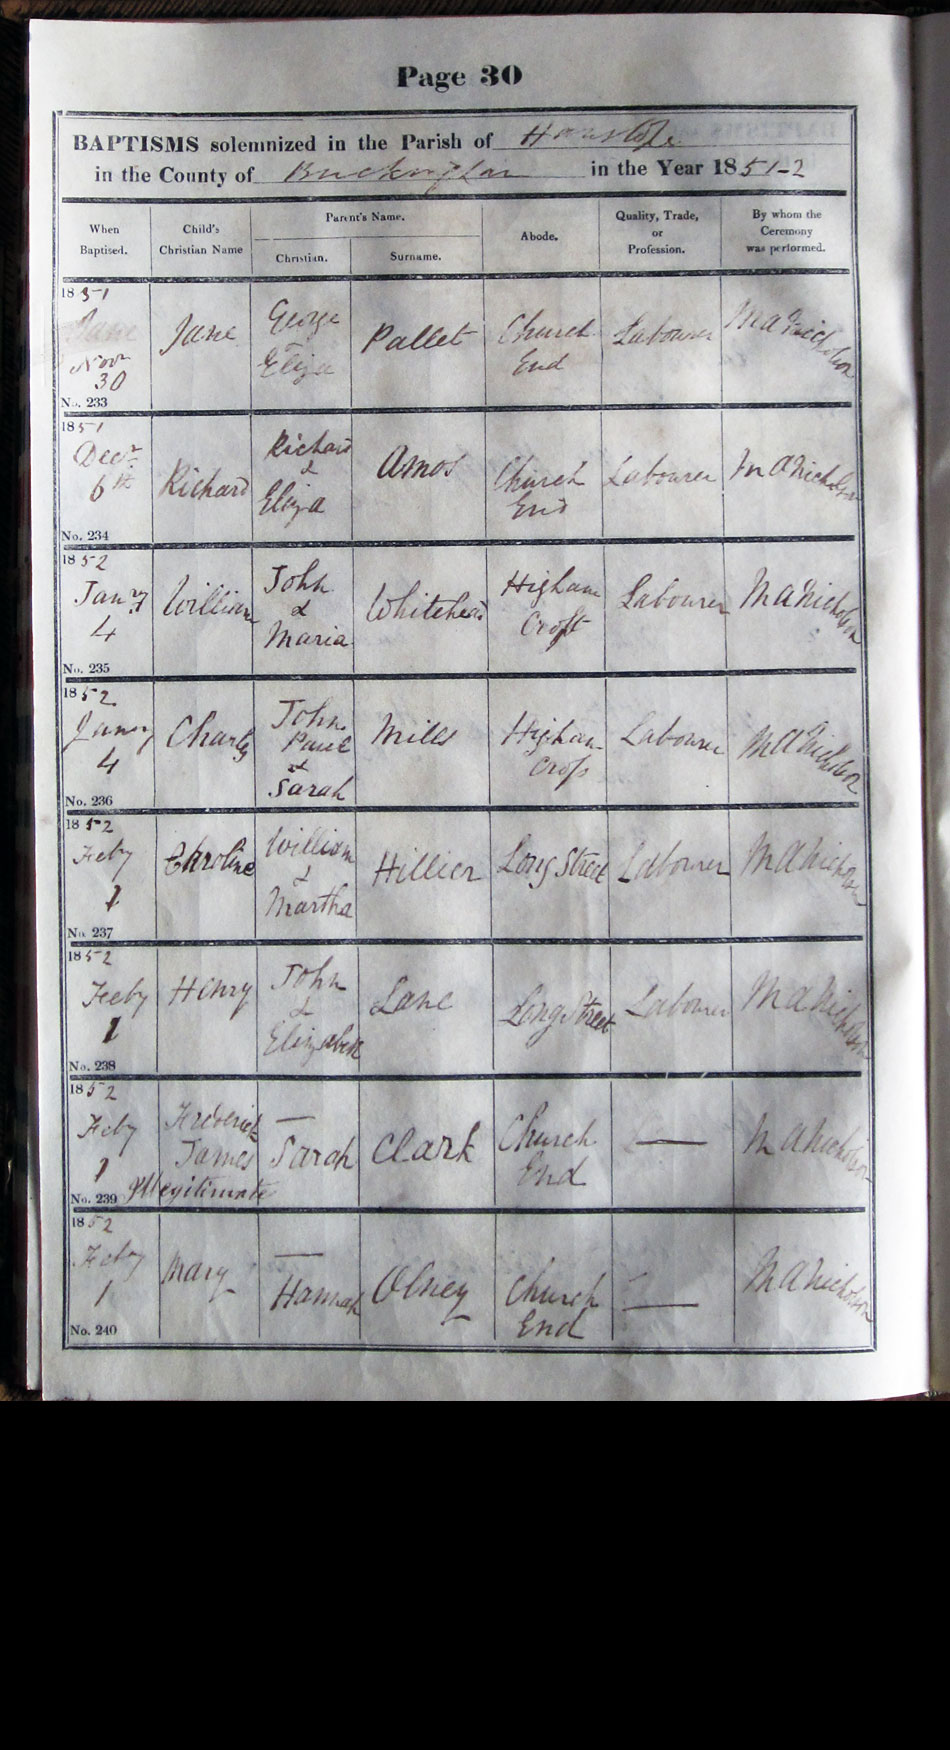 Page 30
BAPTISMS solemnized in the Parish of Hanslope
in the County of Buckingham in the Year 1851-2
When Baptised.
Child's Christian Name
Parent's Name.
Christian.
Surname.
Abode.
Quality, Trade, or Profession.
By whom the Ceremony was performed.
1851
Jane
Novr
30
No. 233
Jane
George
&
Eliza
Pallet
Church
End
Labourer
M A Nicholson
1851
Decr
6th
No. 234
Richard
Richard
&
Eliza
Amos
Church
End
Labourer
M A Nicholson
1852
Jany
4
No. 235
William
John
&
Maria
Whitehead
Higham
Croft
Labourer
M A Nicholson
1852
Jany
4
No. 236
Charles
John
Paul
&
Sarah
Mills
Higham
Cross
Labourer
M A Nicholson
1852
Feby
1
No. 237
Caroline
William
&
Martha
Hillier
Long Street
Labourer
M A Nicholson
1852
Feby
1
No. 238
Henry
John
&
Elizabeth
Lane
Long Street
Labourer
M A Nicholson
1852
Feby
1
No. 239
Frederick
James
Illegitimate
—
Sarah
Clark
Church
End
—
M A Nicholson
1852
Feby
1
No. 240
Mary
—
Hannah
Olney
Church
End
—
M A Nicholson